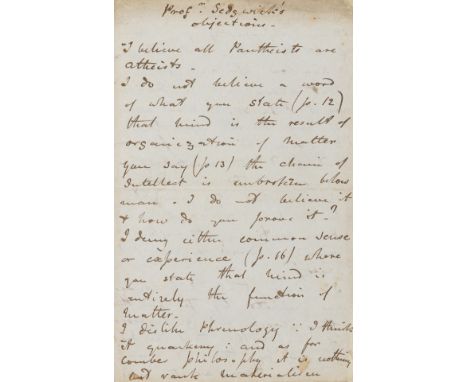 Profr. Sedgwick's
objections.
I believe all Pantheists are
atheists.
I do not believe a word
of what you state (p. 12)
that mind is the result of
organization of matter
you say (p 13) the chain of
Intellect is unbroken below
man. I do not believe it
& how do you prove it?
I deny either common sense
or experience (p. 16) where
you state that mind is
entirely the function of
matter.
I dislike Phrenology: I think
it quackery: and as for
Combe philosophy it is nothing
but rank materialism